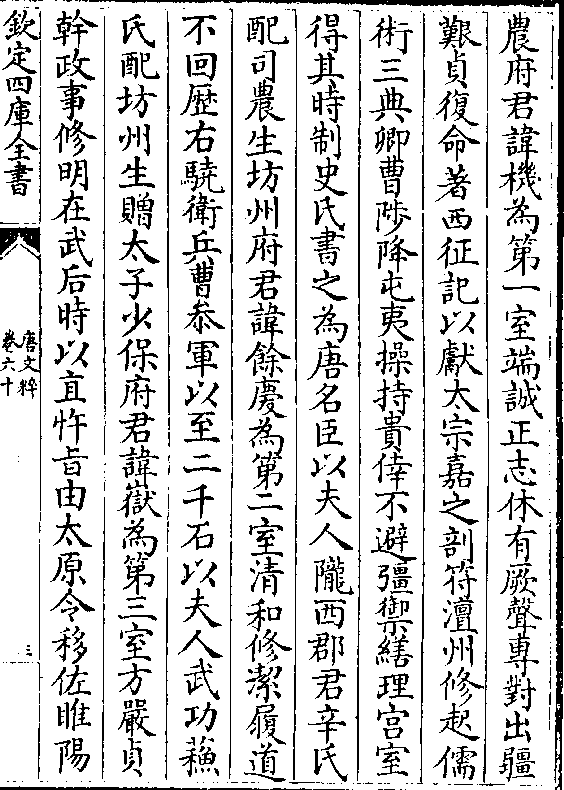 農府君諱機為第一室端誠正志休有厥聲專對出疆
艱貞復命著西征記以獻太宗嘉之剖符澶州修起儒
術三典卿曹陟降屯夷操持貴倖不避彊禦繕理宫室
得其時制史氏書之為唐名臣以夫人隴西郡君辛氏
配司農生坊州府君諱餘慶為第二室清和修潔履道
不回歴右驍衛兵曹叅軍以至二千石以夫人武功蘓
氏配坊州生贈太子少保府君諱嶽為第三室方嚴貞
幹政事修明在武后時以直忤㫖由太原令移佐睢陽
欽定四庫全書
唐文粹
卷六十
三